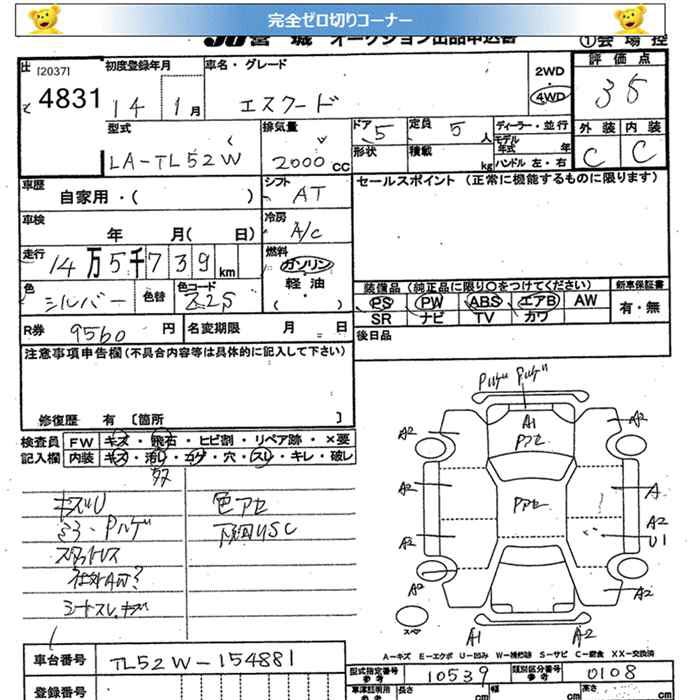 完全ゼロ切りコーナー
JU 宮城 オークション出品申込書 ①会場控
[2037] 初度登録年月 車名・グレード 2WD 評価点
4831 14 1月 エスクード 4WD 35
型式 排気量 ドア 5 定員 5人 ディーラー・並行 外装 内装
LA-TL52W 2000CC 形状 積載 kg モデル年式 年 C C
ハンドル 左・右
車歴 自家用・( ) シフト AT セールスポイント (正常に機能するものに限ります)
車検 年 月( 日) 冷房 A/C
走行 14万5千739km 燃料 ガソリン
軽油
( )
色 シルバー 色替 色コード Z2S 装備品(純正品に限り○をつけてください) 新車保証書
PS PW ABS エアB AW 有・無
SR ナビ TV カワ
R券 9560円 名変期限 月 日 後日品
注意事項申告欄(不具合内容等は具体的に記入して下さい)
修復歴 有 〔箇所 〕
検査員 FW キズ・飛石・ヒビ割・リペア跡・×要
記入欄 内装 キズ・汚り・コゲ・穴・スレ・キレ・破レ
キズU 色アセ
ミラ・Pハゲ 下廻りSC
シートスレ、キズ
Pハゲ Pハゲ
A2 A1 A2
Pアセ
A2 Pアセ A
A2 A2
U1
A2 A2
スペア
A1 A2
A-キズ E-エクボ U-凹み W-補修跡 S-サビ C-腐食 XX-交換済
車台番号 TL52W-154881
型式指定番号 参考 10539 類別区分番号 参考 0108
登録番号 車庫証明用 参考 長さ cm 幅 cm 高さ cm